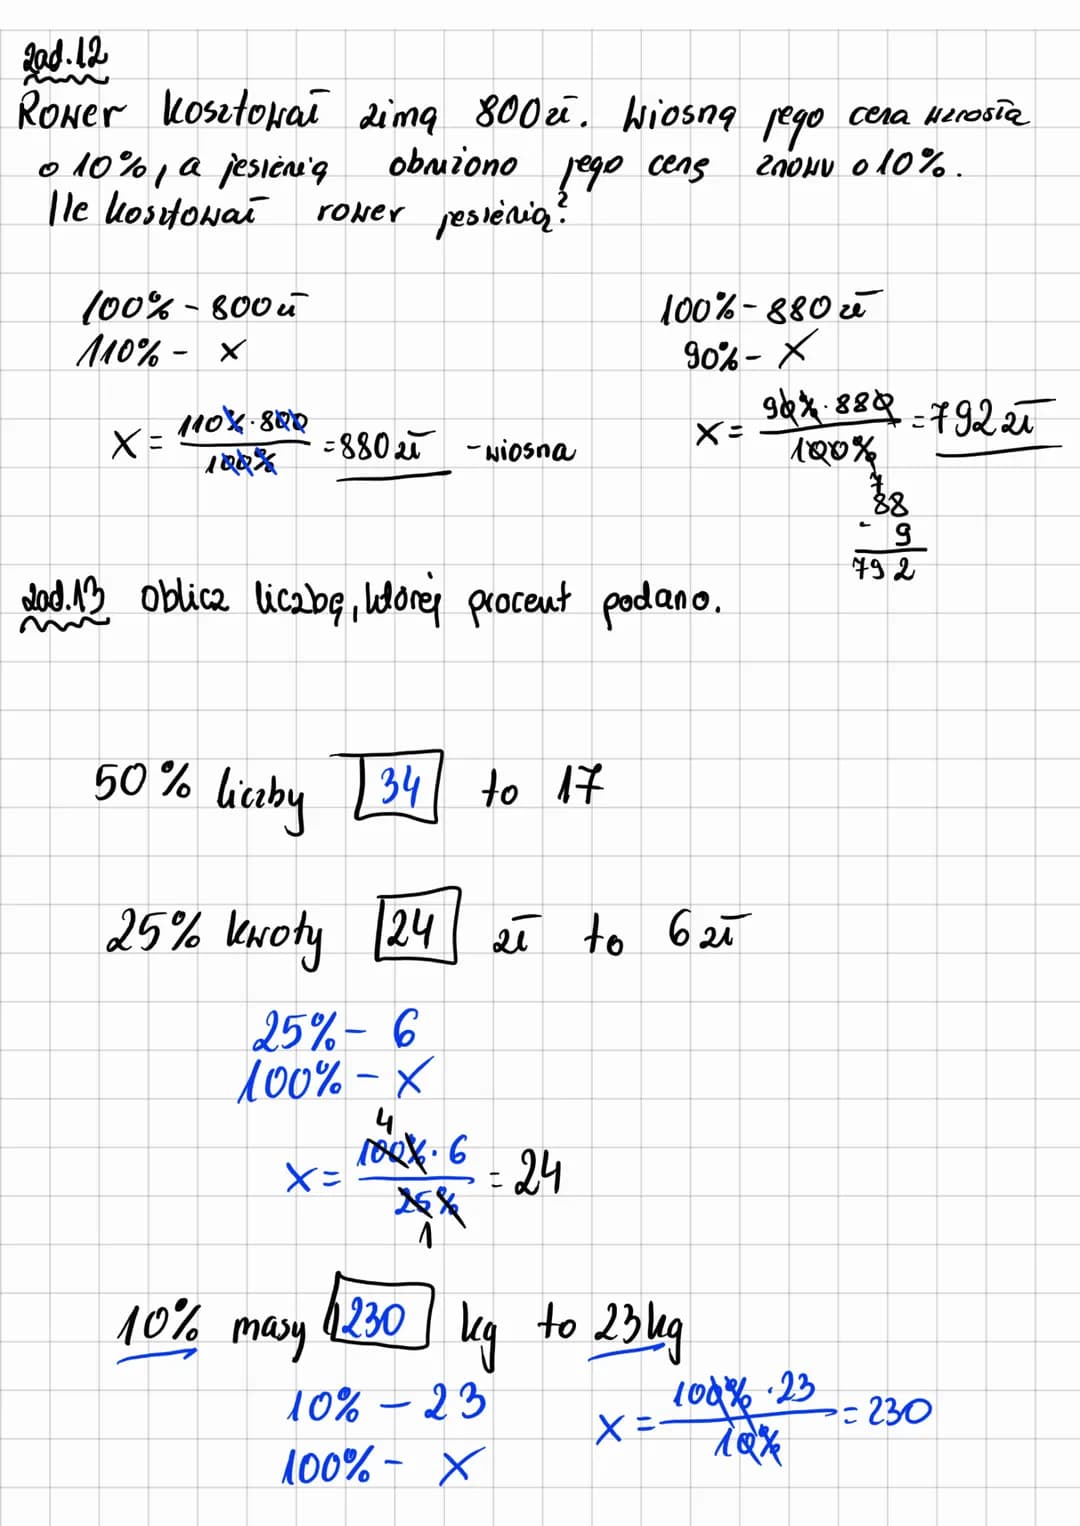 zad.12
Rower kosztował zimą 800zł. Wiosną jego cena wzrosła
o 10%, a jesienią obniżono jego cenę znowu o 10%.
Ile kosztował rower jesienią?
100% - 800zł
110% - x
x = 110%·800 / 100% = 880zł - wiosna
100% - 880zł
90% - x
x = 90%·880 / 100% = 792zł
7
88
· 9
792
zad.13 Oblicz liczbę, której procent podano.
50% liczby 34 to 17
25% kwoty 24 zł to 6zł
25% - 6
100% - x
4
x = 100%·6 / 25% = 24
1
10% masy 230 kg to 23kg
10% - 23
100% - x
x = 100%·23 / 10% = 230